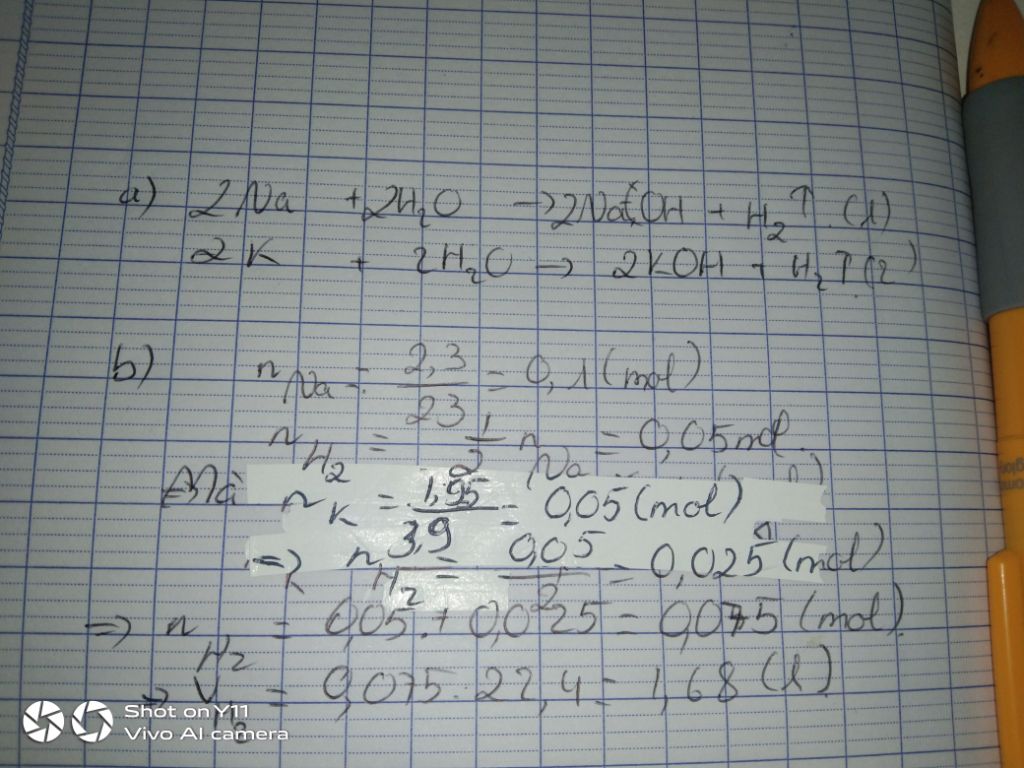 a) 2Na + 2H₂O → 2NaOH + H₂↑ (1)
2K + 2H₂O → 2KOH + H₂↑ (2)
b) nNa = 2,3/23 = 0,1 (mol)
nH₂ = 1/2 nNa = 0,05 mol
Mà nK = 1,95/3,9 = 0,05 (mol)
=> nH₂ = 0,05/2 = 0,025 (mol)
=> nH₂ = 0,05 + 0,025 = 0,075 (mol)
=> VH₂ = 0,075 . 22,4 = 1,68 (l)
Shot on Y11
Vivo AI camera